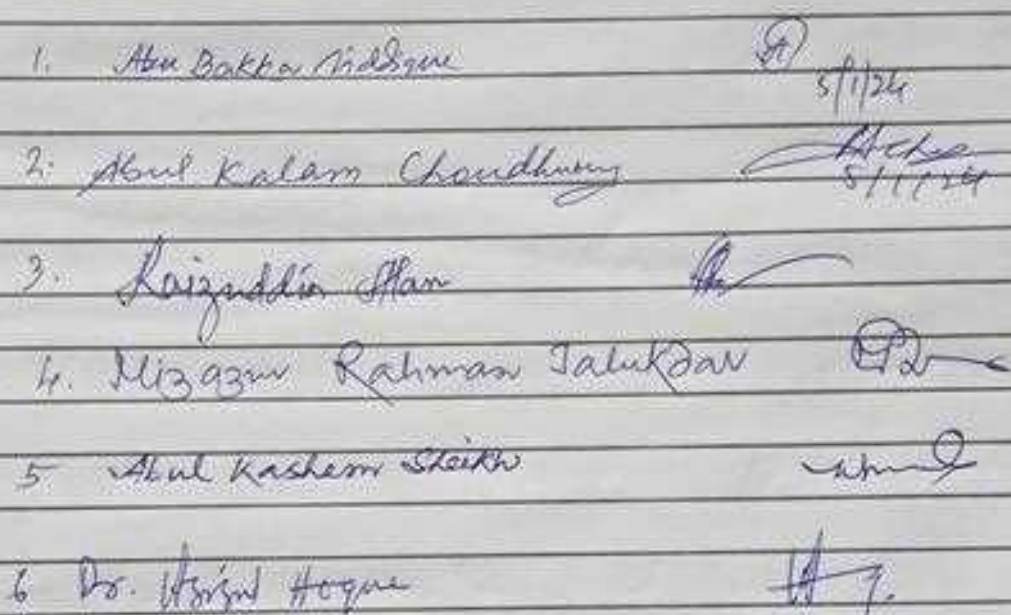 1. Abu Bakkar Siddique
5/1/24
2. Abul Kalam Choudhury
5/1/24
3. Raizuddin
4. Rahman Talukdar
5 Abul Kashem Sheikh
6 Dr. Hoque